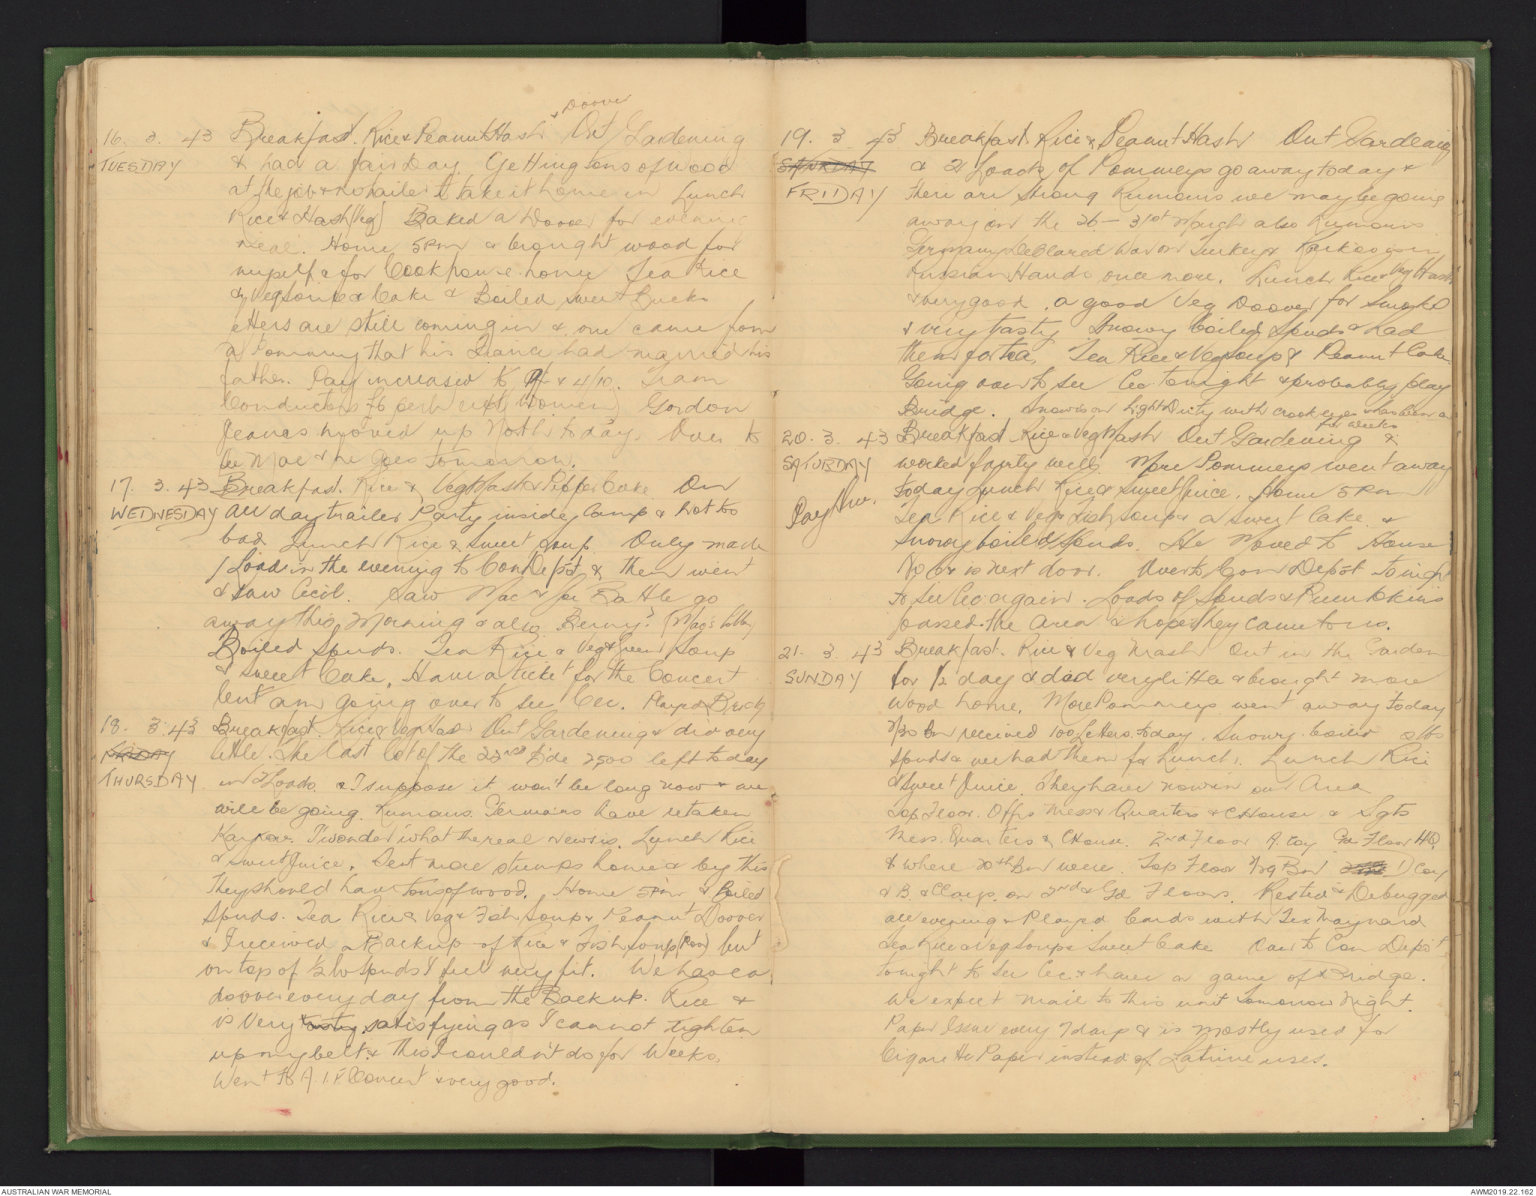 & Doover
16. 3. 43 Breakfast. Rice & Peanut Hash Out Gardening
TUESDAY & had a fair day. Getting tons of wood
at the job & no trailer to take it home in Lunch
Rice & Hash (Veg) Baked a Doover for evening
meal. Home 5 Pm & brought wood for
myself & for Cookhouse home Tea Rice
& Veg Soup & Cake & Boiled sweet Bucks
etters are still coming in & one came from
a Pommy that his fiance had married his
father. Pay increased to 9/- & 4/10. Tram
Conductors £6 per week (Women) Gordon
Jeanes moved up North today. Over to
see Mac & he goes tomorrow.
17. 3. 43 Breakfast. Rice & Veg Hash & Pepper Cake On
WEDNESDAY all day trailer Party inside Camp & not too
bad Lunch Rice & Sweet Soup. Only made
1 Load in the evening to Con Depot & then went
& saw Cecil. Saw Mac & Joe Battle go
away this morning & also Benny?
Boiled Spuds. Tea Rice & Veg & Green Soup
& sweet Cake. Have a ticket for the Concert
but am going over to see Cec. Played Bridge
18. 3. 43 Breakfast. Rice & Veg Hash Out Gardening & did very
FRIDAY little. The last lot of the 22nd Bde 2,500 left today
THURSDAY in 2 Loads & I suppose it won't be long now & we
will be going. Rumours. Germans have retaken
Karkov. I wonder what the real news is. Lunch Rice
& Sweet Juice. Sent more stumps home & by this
They should have tons of wood. Home 5 Pm & Boiled
Spuds. Tea Rice & Veg & Fish Soup & Peanut Doover
& I received a Backup of Rice & Fish Soup (Poor) but
on top of ½ lb spuds I feel very fit. We have a
doover every day from the Backup. Rice &
is Very tasty satisfying as I cannot tighten
up my belt & this I couldn't do for Weeks.
Went to A.I.F. Concert & very good.
19. 3. 43 Breakfast. Rice & Peanut Hash Out Gardening
SATURDAY & 2 Loads of Pommeys go away today &
FRIDAY there are strong Rumours we may be going
away on the 26 - 31st March also Rumours
Germany Declared War on Turkey & Karkov in
Russian Hands once more. Lunch Rice & Veg Hash
& very good. a good Veg Doover for Smoko
& very tasty. Snowy boiled Spuds & had
them for tea. Tea Rice & Veg Soup & Peanut Cake.
Going over to see Cec. tonight & probably play
Bridge. Snow is on Light Duty with crook eyes & has been on
for weeks
20. 3. 43 Breakfast Rice & Veg Hash Out Gardening &
SATURDAY worked fairly well. More Pommeys went away
today Lunch Rice & Sweet Juice. Home 5 Pm
Pay Tea Rice & Veg & Fish Soup & a Sweet Cake &
Snowy boiled Spuds. He Moved to House
No 6 & is next door. Over to Con Depôt tonight
to see Cec again. Loads of Spuds & Pumpkins
passed the Area & hope they came to us.
21. 3. 43 Breakfast. Rice & Veg Hash Out in the Garden
SUNDAY for ½ day & did very little & brought more
Wood home. More Pommeys went away today
2/30 Bn received 100 Letters today. Snowy boiled
spuds & we had them for Lunch. Lunch Rice
& Sweet Juice. They have now in our Area
Top Floor. Offrs Mess & Quarters & CHouse & Sgts
Mess. Quarters & CHouse. 2nd Floor A. Coy Gd Floor HQ
& where 20th Bn were. Top Floor 2/29 Bn Coy
& B. & C Coys. on 2nd & Gd Floors. Rested & Debugged
all evening & Played Cards with Tex Maynard
Tea Rice & Veg Soup & Sweet Cake over to Con Depôt
tonight to see Cec. & have a game of Bridge.
We expect mail to this unit tomorrow Night.
Paper Issue every 7 days & is mostly used for
Cigarette Paper instead of Latrine uses.
AUSTRALIAN WAR MEMORIAL
AWM2019.22.162